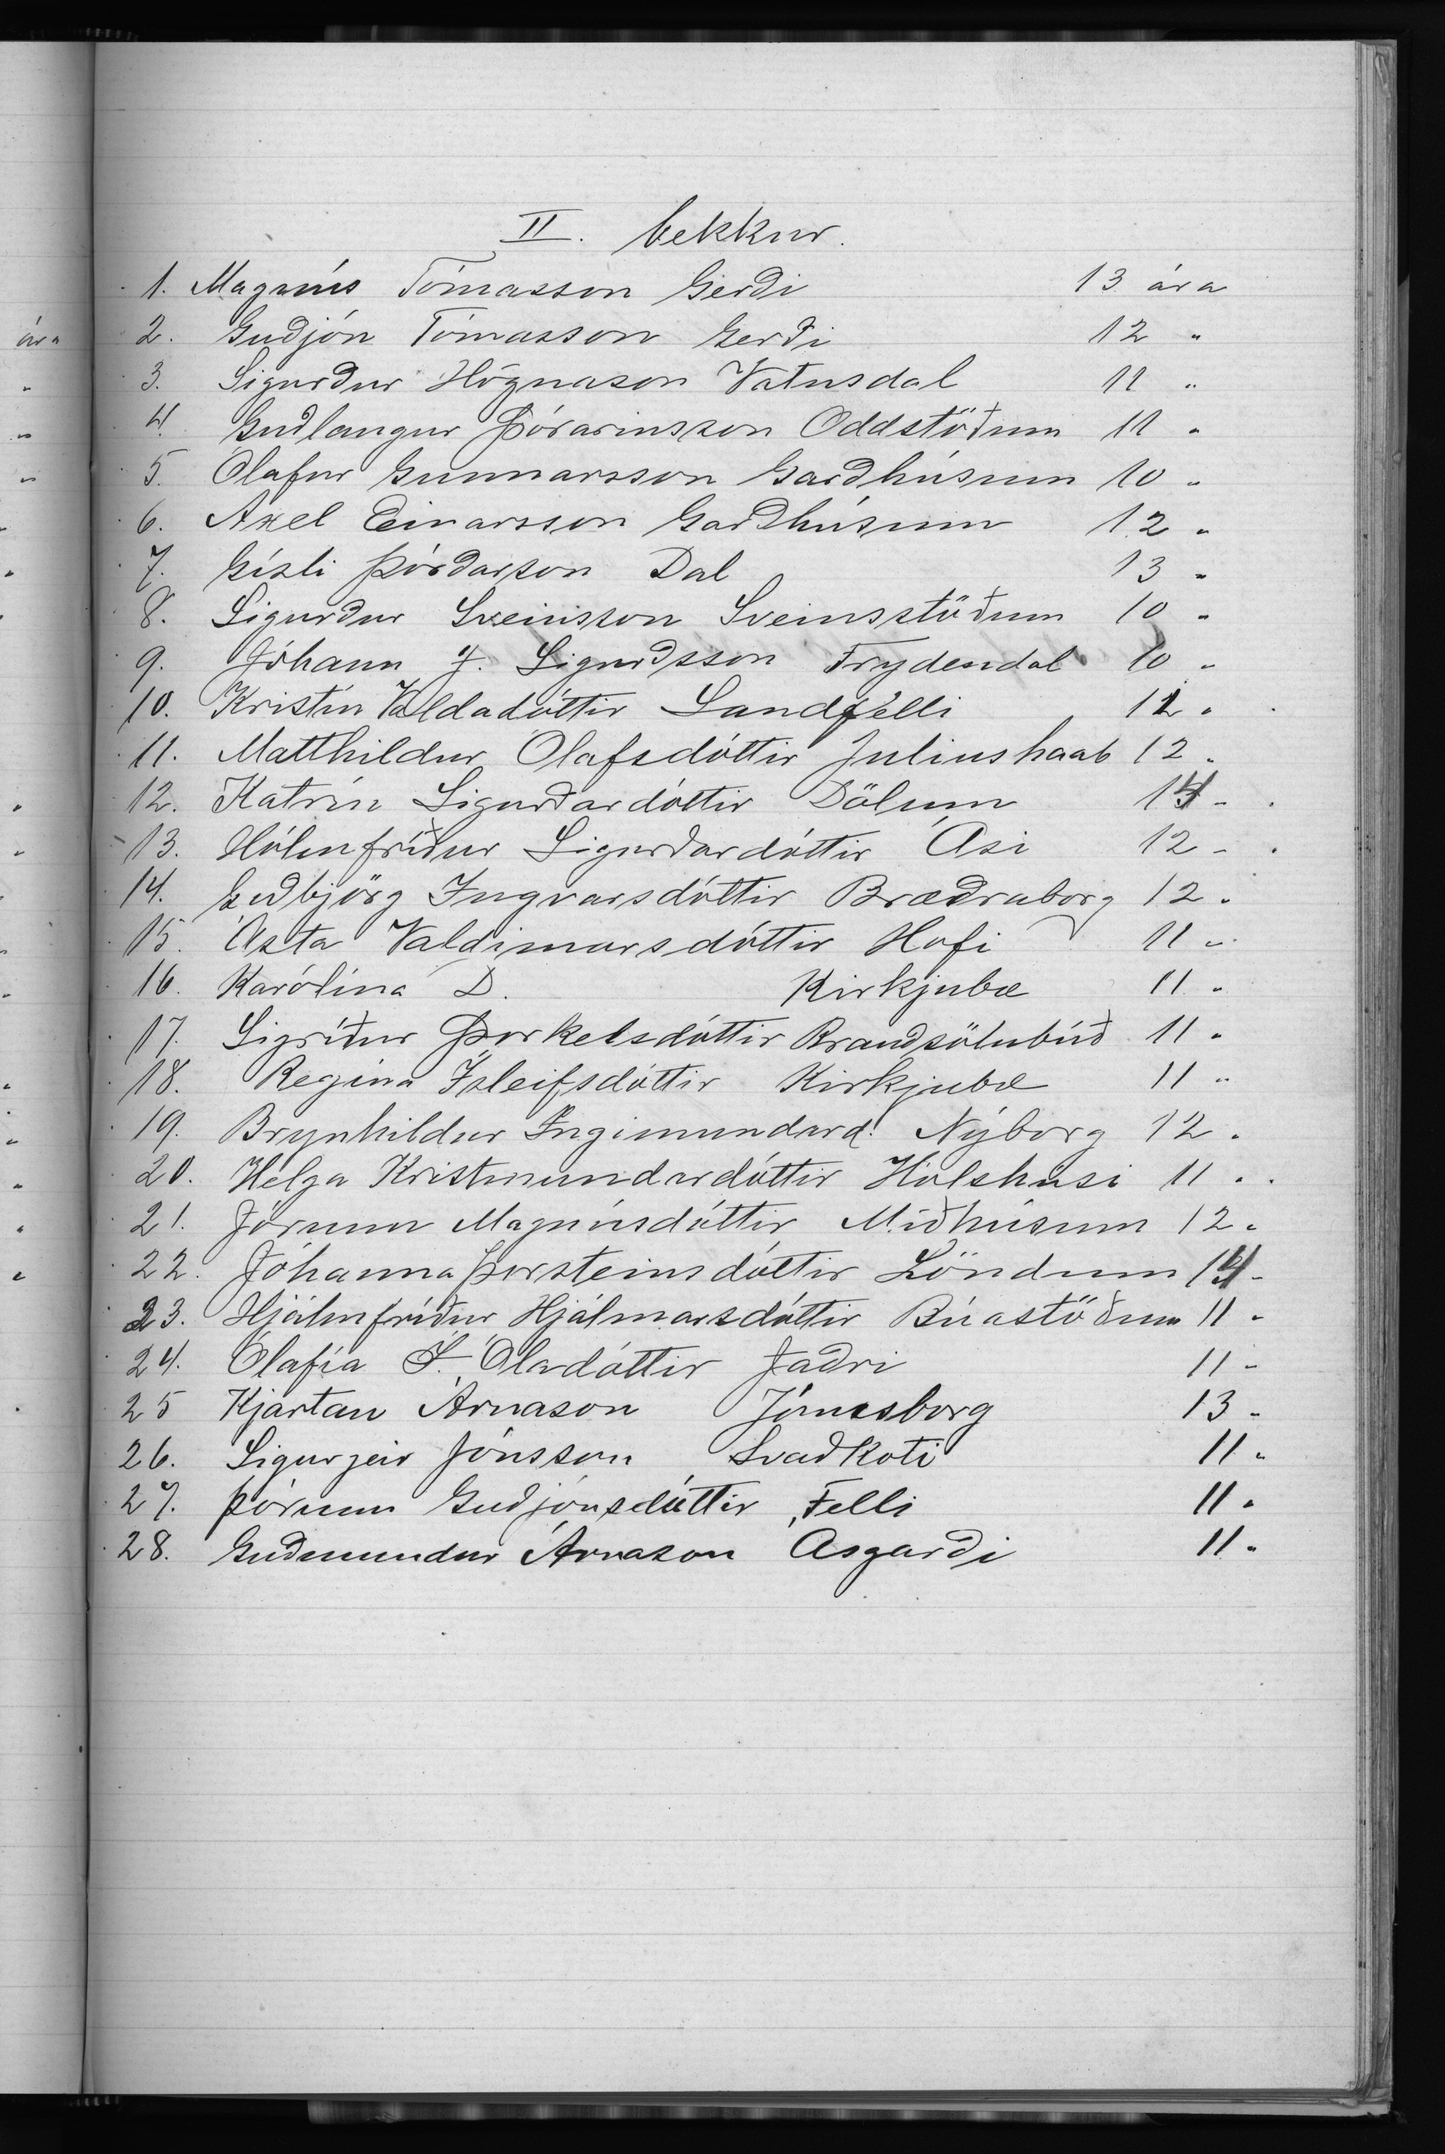 II. bekkur.
1. Magnús Tómasson Gerði 13 ára
2. Guðjón Tómasson Gerði 12 "
3. Sigurður Högnason Vatnsdal 11 "
4. Guðlaugur Þórarinsson Oddstöðum 11 "
5. Ólafur Gunnarsson Garðhúsum 10 "
6. Axel Einarsson Garðhúsum 12 "
7. Gísli Þórðarson Dal 13 "
8. Sigurður Sveinsson Sveinsstöðum 10 "
9. Jóhann J. Sigurðsson Frydendal 10 "
10. Kristín Valdadóttir Sandfelli 12 "
11. Matthildur Ólafsdóttir Juliushaab 12 "
12. Katrín Sigurðardóttir Dölum 14 "
13. Hólmfríður Sigurðardóttir Ási 12 "
14. Guðbjörg Ingvarsdóttir Bræðraborg 12 "
15. Ásta Valdimarsdóttir Hofi 11 "
16. Karólína D. Kirkjubæ 11 "
17. Sigríður Þorkelsdóttir Brauðsölubúð 11 "
18. Regína Ísleifsdóttir Kirkjubæ 11 "
19. Brynhildur Ingimundard. Nýborg 12 "
20. Helga Kristmundardóttir Hólshúsi 11 "
21. Jórunn Magnúsdóttir Miðhúsum 12 "
22. Jóhanna Þorsteinsdóttir Löndum 14 "
23. Hjálmfríður Hjálmarsdóttir Búastöðum 11 "
24. Ólafía Óladóttir Jaðri 11 "
25 Kjartan Árnason Jómsborg 13 "
26. Sigurgeir Jónsson Svaðkoti 11 "
27. Þórunn Guðjónsdóttir Felli 11 "
28. Guðmundur Árnason Ásgarði 11 "
ára